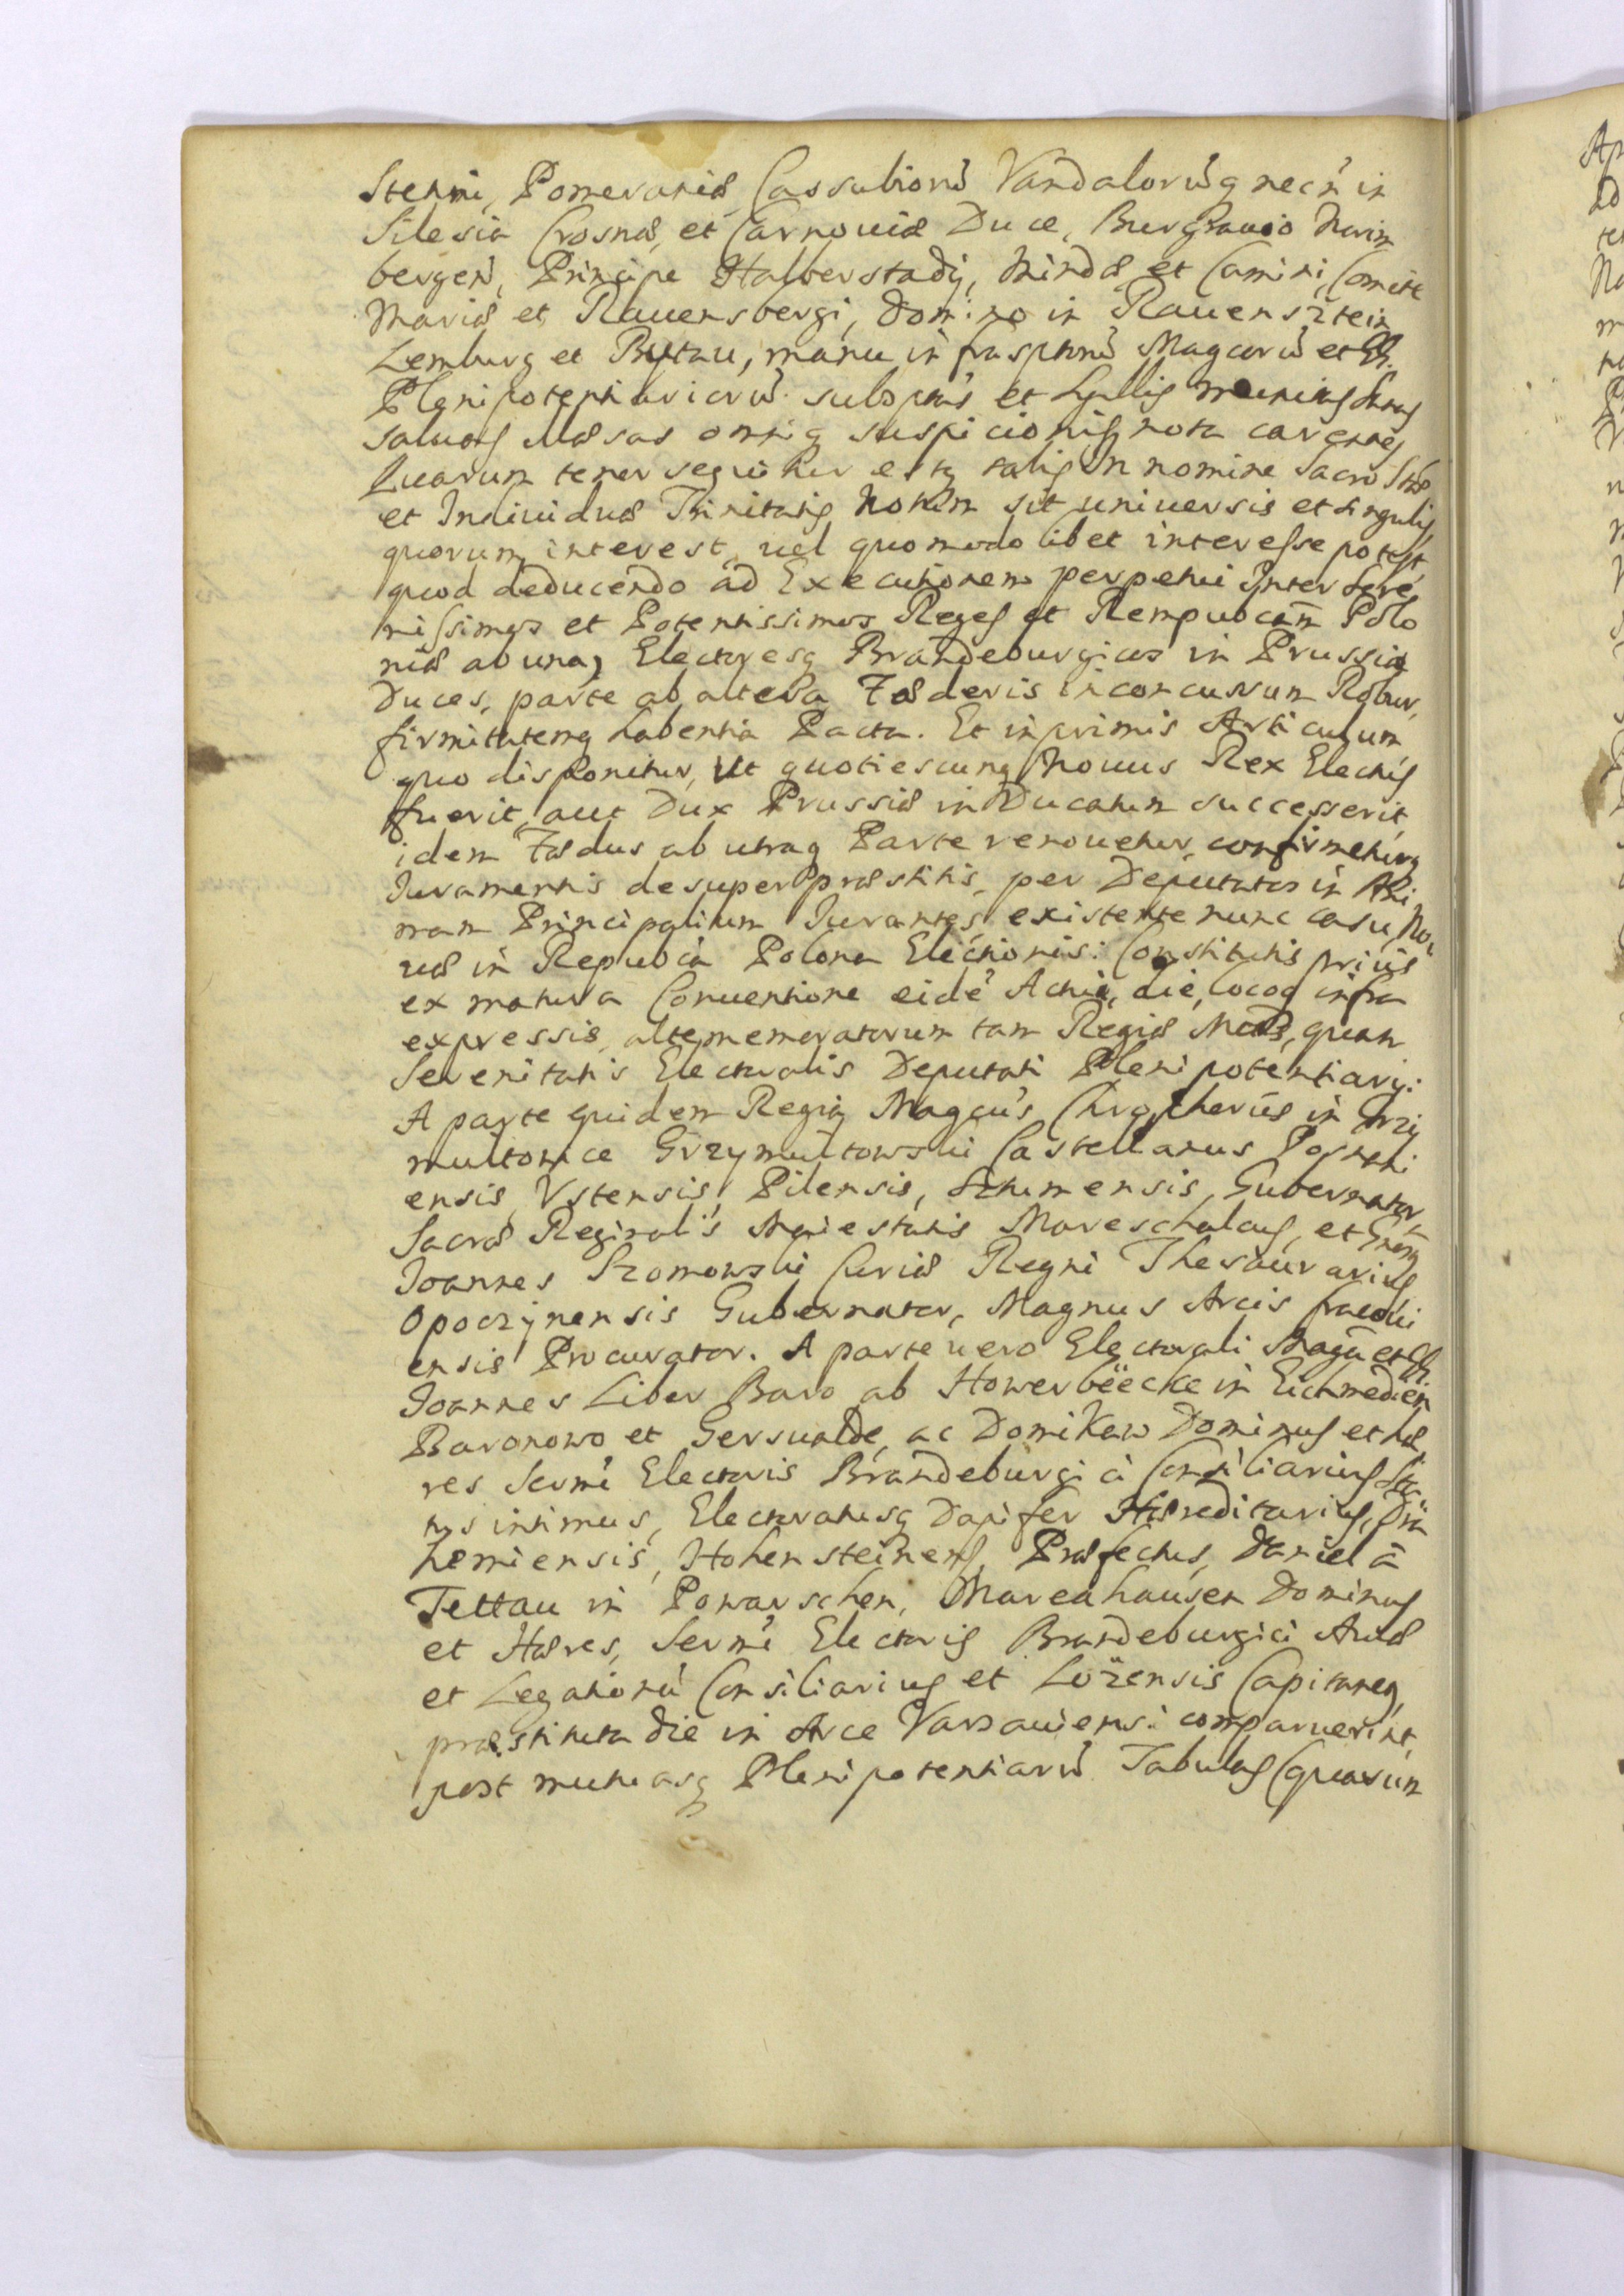 Stetini, Pomeraniæ, Cassubiorũ Vandalorũq necñ in
Silesia Crosnæ, et Carnouiæ Duce, Burgrauio Norim
bergeñ, Principe Halberstadij, Mindæ et Camini, Comite
Mariæ et Rauensbergi, Domino in Rauensztein
Lemburg et Bytau, manu infrasptorũ Magcorũ et G.
Plenipotentiariorũ subsptas et sigillis munitas
saluas illæsas omniq suspicionis nota carentes
Quarum tenor sequitur estq talis In nomine Sacro Stæ
et Indiuiduæ Trinitatis Notum sit uniuersis et singulis
quorum interest, uel quomodolibet interesse potest,
quod deducendo ad Executionem perpetui Inter Sere
nissimos et Potentissimos Reges et Rempubcam̃ Polo
niæ ab una, Electoresq Brandeburgicos in Prussia
Duces, parte ab altera Fœderis inconcussum Robur,
firmitatemq habentia Pacta. Et inprimis Articulum
quo disponitur, Ut quotiescunq Nouus Rex Electus
fuerit, aut Dux Prussiæ in Ducatum successerit,
idem Fœdus ab utraq Parte renouetur, confirmeturq
Iuramentis desuper præstitis, per Deputatos in Ani
mam Principalium Iurantes, existente nunc casu No
uæ in Repubca Polona Electionis: Constitutis prius
ex matura Conuentione eidẽ Actui, die, locoq infra
expressis, altememoratorum tam Regiæ Mttis, quam
Serenitatis Electoralis Deputati Plenipotentiarij:
A parte quidem Regia Magcus Chrystherus in Grzy
multowice Grzymultowski Castellanus Posnani
ensis, Ustensis, Pilensis, Gubernator,
Sacræ Reginalis Maiestatis Mareschalcus, et Gnrsq
Joannes Szomowski Curiæ Regni Thesaurarius
Opocznensis Gubernator, Magnus Arcis Cracoui
ensis Procurator. A parte uero Electorali Magcũ et G.
Joannes Liber Baro ab Howerbeecke in Eichmedien
Baronowo et Gersualde, ac Domikaw Dominus et hæ
res Sermi Electoris Brandeburgici Consiliarius Sta
tus intimus, Electoratusq Dapifer Hæreditarius,
hemiensis, Hohensteinens, Præfectus, Daniel à
Tettau in Powarschen, Mareahausen Dominus
et Hæres, Sermi Electoris Brandeburgici Aulæ
et Legationũ Consiliarius et Lözensis Capitaneq,
præstituta die in Arce Varsauiensi comparuerint,
post mutuasq Plenipotentiarũ Tabulas (quarum